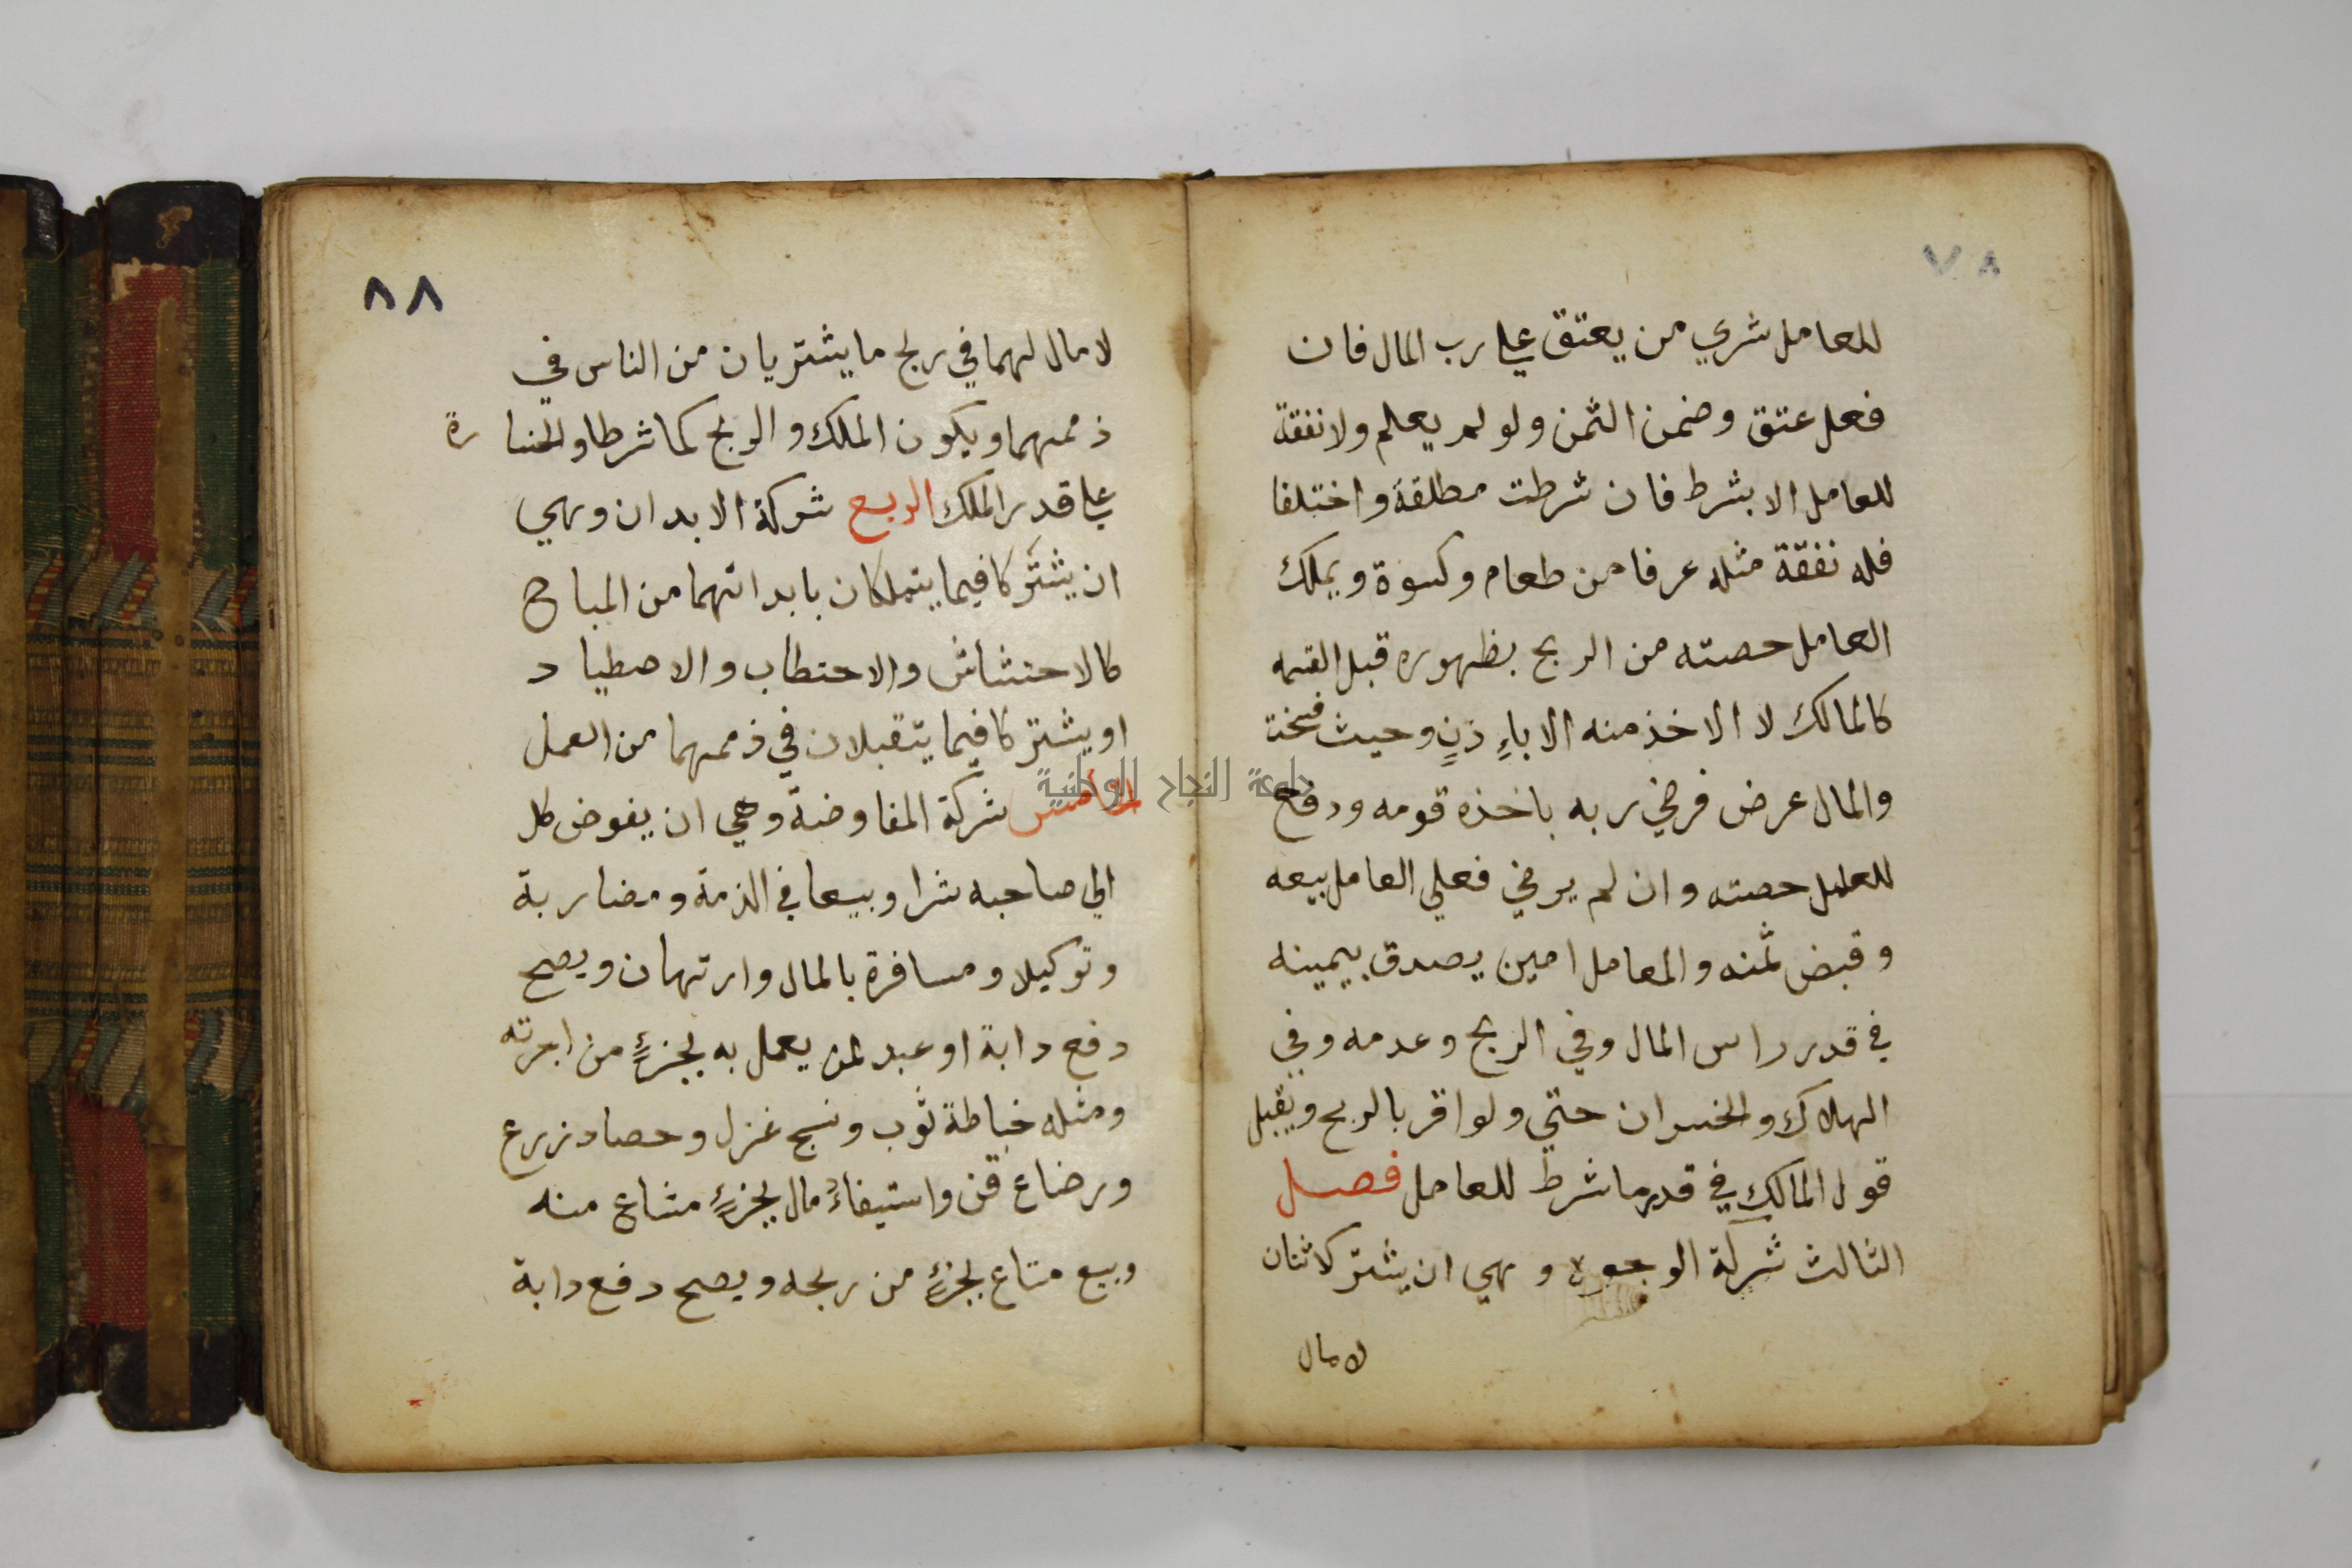 ٧٨
للعامل شري من يعتق علي رب المال فان
فعل عتق وضمن الثمن ولو لم يعلم ولا نفقة
للعامل الا بشرط فان شرطت مطلقة واختلفا
فله نفقة مثله عرفا من طعام وكسوة ويملك
العامل حصته من الربح بظهوره قبل القسمه
كالمالك لا الاخذ منه الا باءذن وحيث فسخت
والمال عرض فرضي ربه باخذه قومه ودفع
للعامل حصته وان لم يرضي فعلي العامل بيعه
وقبض ثمنه والعامل امين يصدق بيمينه
في قدر راس المال وفي الربح وعدمه وفي
الهلاك والخسران حتي ولو اقر بالربح ويقبل
قول المالك في قدر ما شرط للعامل فصل
الثالث شركة الوجوه وهي ان يشتركا اثنان
لا مال
٨٨
لا مال لهما في ربح ما يشتريان من الناس في
ذممهما ويكون الملك والربح كما شرطا والخسارة
علي قدر الملك الربع شركة الابدان وهي
ان يشتركا فيما يتملكان بابدانهما من المباح
كالاحتشاش والاحتطاب والاصطياد
او يشتركا فيما يتقبلان في ذممهما من العمل
الخامس شركة المفاوضة وهي ان يفوض كل
الي صاحبه شرا وبيعا في الذمة ومضاربة
وتوكيلا ومسافرة بالمال وارتهان ويصح
دفع دابة او عبد لمن يعمل به بجزءٍ من اجرته
ومثله خياطة ثوب ونسج غزل وحصاد زرع
ورضاع قن واستيفاء مال بجزءٍ مشاع منه
وبيع متاع بجزءٍ من ربحه ويصح دفع دابة
جامعة النجاح الوطنية